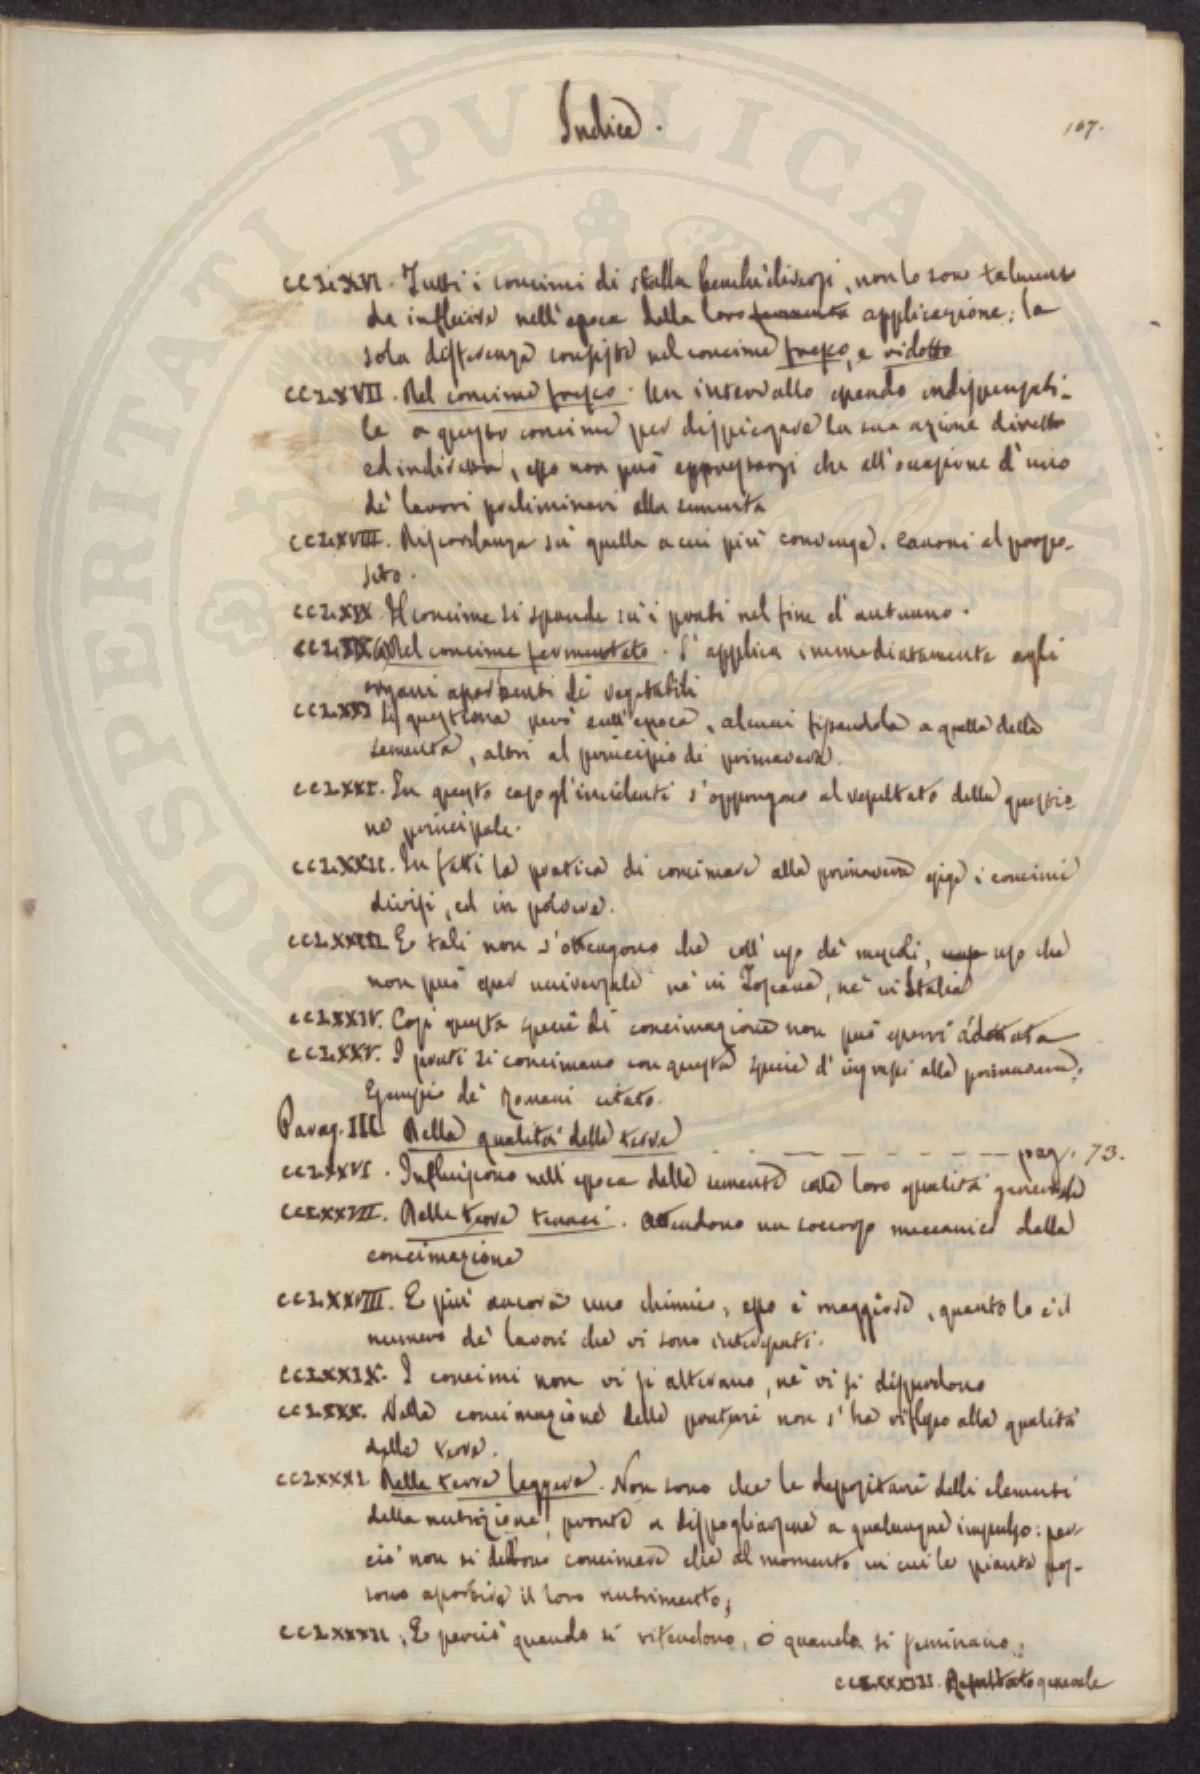 Indice.
167.
CCLXVI. Tutti i concimi di stalla benchè diversi, non lo sono talmente
da influire nell'epoca della loro applicazione: la
sola differenza consiste nel concime fresco, e ridotto
CCLXVII. Del concime fresco. Un intervallo essendo indispensabi-
le a questo concime per dispiegare la sua azione diretta
ed indiretta, esso non può apprestarsi che all'occasione d'uno
de' lavori preliminari alla sementa
CCLXVIII. Discordanza sù quella a cui più convenga. Canoni al propo-
sito.
CCLXIX. Il concime si spande sù i prati nel fine d'autunno.
CCLXIX(a) Del concime fermentato. S'applica immediatamente agli
organi assorbenti de' vegetabili
CCLXX Si questiona però sull'epoca, alcuni fissandola a quella della
sementa, altri al principio di primavera.
CCLXXI. In questo caso gl'incidenti s'oppongono al resultato della questio-
ne principale.
CCLXXII. In fatti la pratica di concimare alla primavera esige i concimi
divisi, ed in polvere.
CCLXXIII E tali non s'ottengono che coll'uso de' mescoli, uso che
non può esser universale nè in Toscana, nè in Italia
CCLXXIV. Così questa specie di concimazione non può essere adottata
CCLXXV. I prati si concimano con questa specie d'ingrassi alla primavera,
Esempio de' Romani citato.
Parag. III. Della qualità delle terre - - - - - - - - - pag. 73.
CCLXXVI. Influiscono nell'epoca delle sementa colle loro qualità generali
CCLXXVII. Delle terre tenaci. Attendono un soccorso meccanico dalla
concimazione
CCLXXVIII. E più ancora uno chimico, esso è maggiore, quanto lo è il
numero de' lavori che vi sono interessati.
CCLXXIX. I concimi non vi si alterano, nè vi si disperdono
CCLXXX. Nella concimazione delle pasture non s'ha riflesso alla qualità
delle terre.
CCLXXXI Delle terre leggere. Non sono che le depositarie delli elementi
della nutrizione, pronte a dispogliarsene a qualunque impulso: per-
ciò non si debbono concimare che al momento in cui le piante pos-
sono assorbire il loro nutrimento;
CCLXXXII, E perciò quando si ritendono, o quando si seminano;
CCLXXXIII. Resultato generale
PROSPERITATI PVBLICAE AVGENDAE